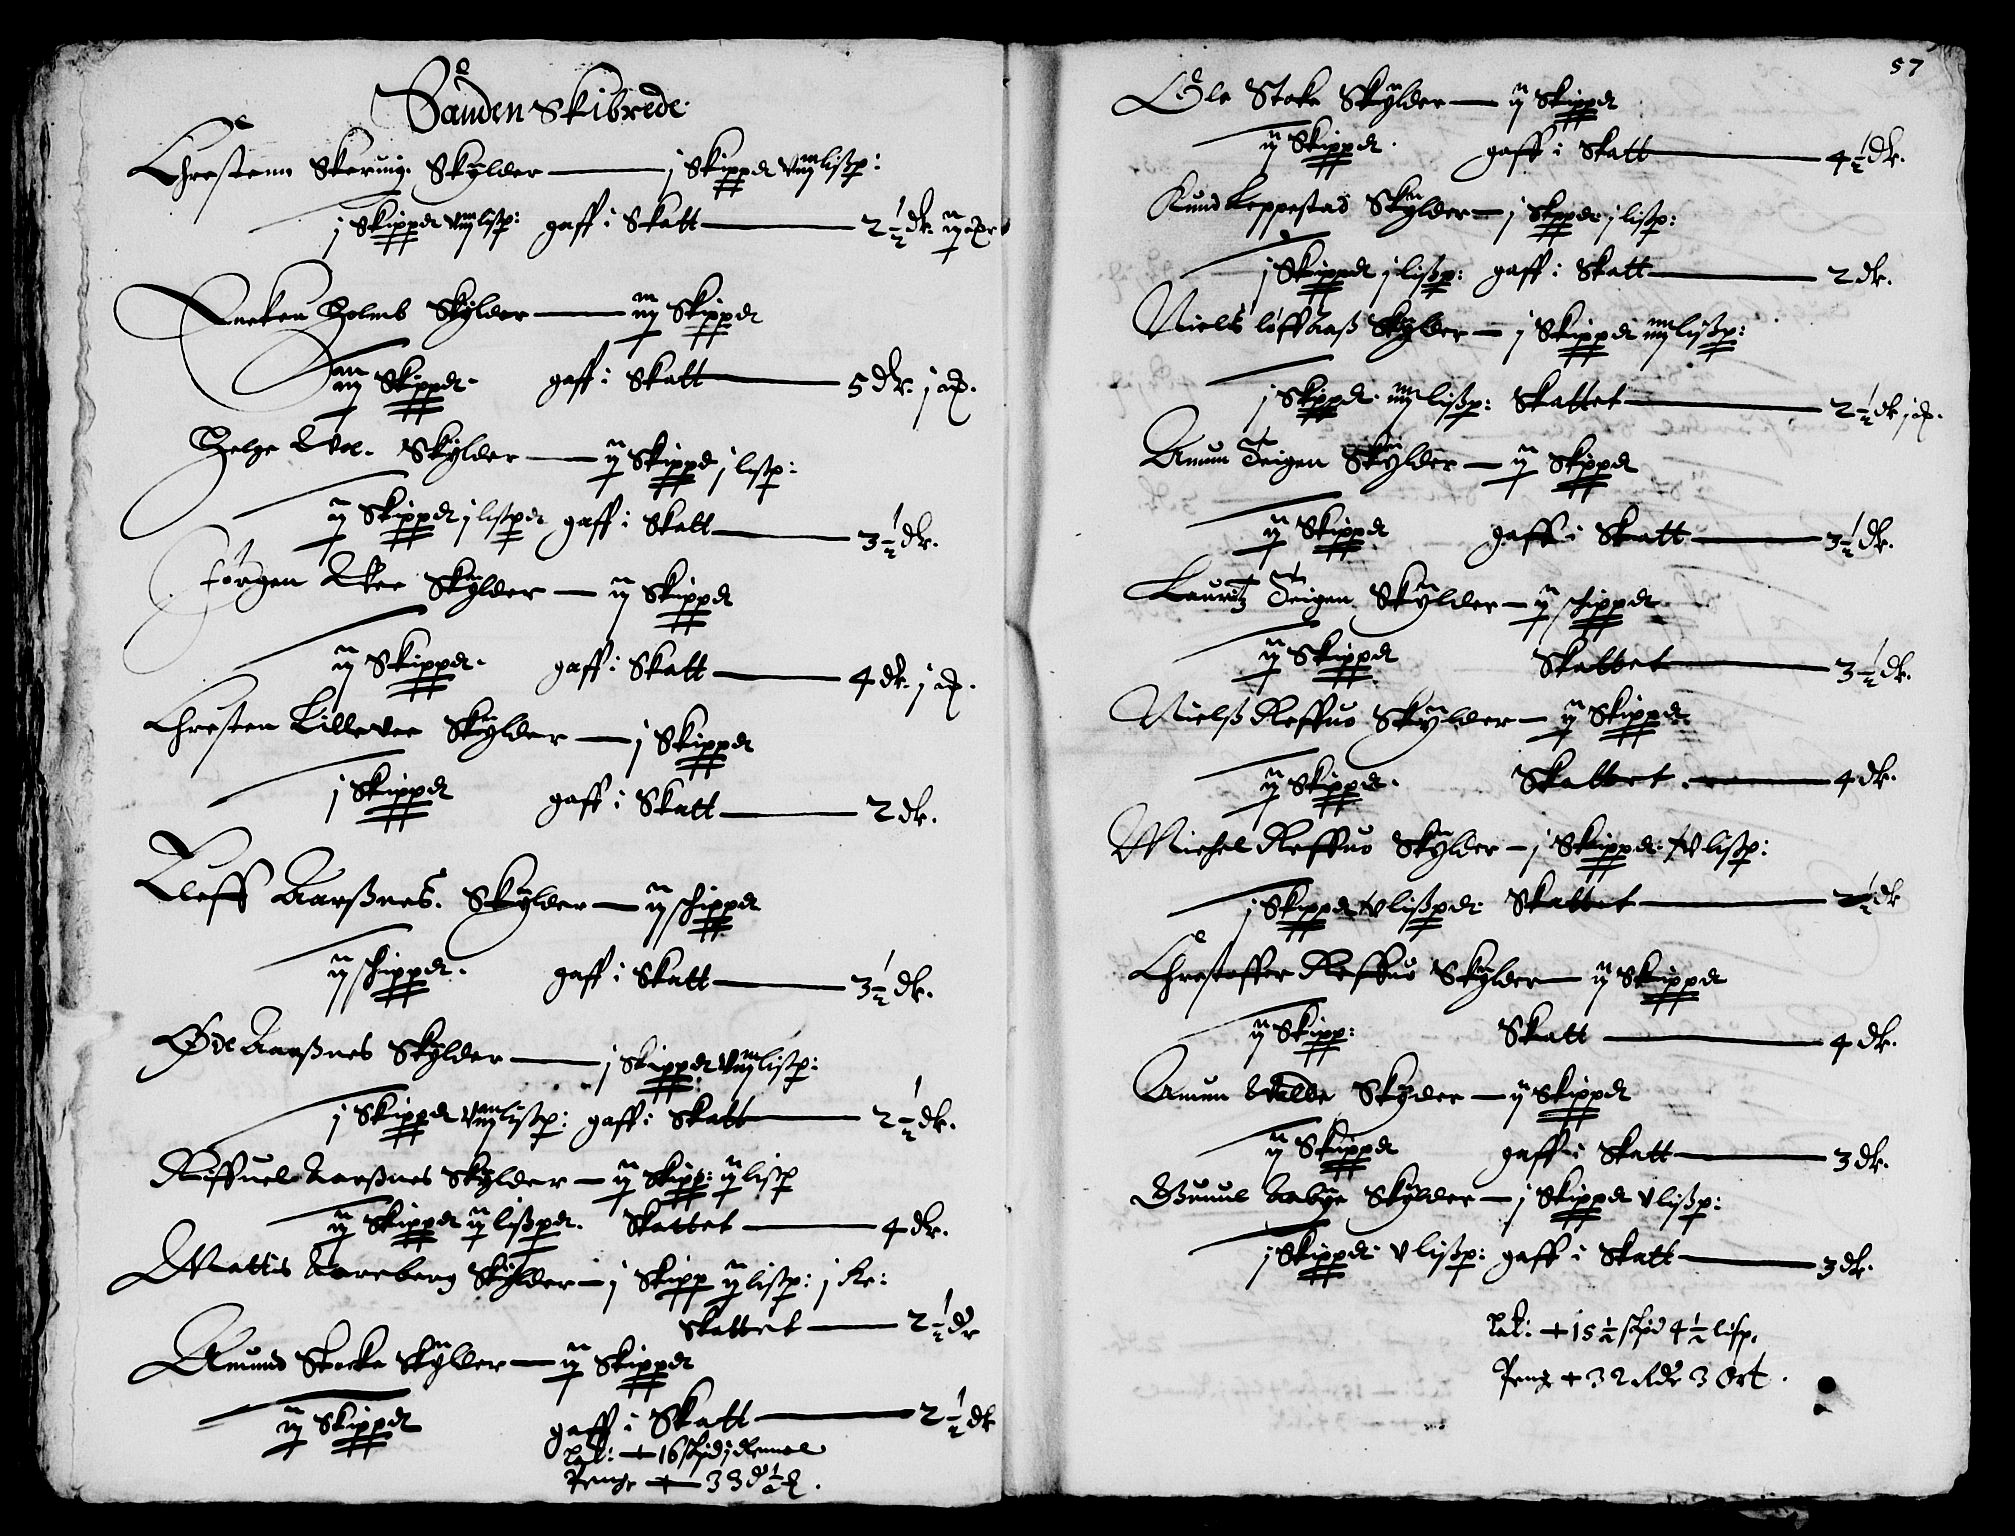 Sanden Skibrede
Chrestenn Skering Skylder — j Skippd viij lißp:
j Skippd viij lißp: gaff i Skatt — 2½ dlr. ij
Holmb Skylder — iij Skippd
iij Skippd. gaff i Skatt — 5 dlr. j
Helge Skylder — ij Skippd j lißp:
ij Skippd j lißpd gaff i Skatt — 3½ dlr.
Jørgen Skylder — ij Skippd
ij Skippd. gaff i Skatt — 4 dlr. j
Chresten Lilleuee Skylder — j Skippd
j Skippd gaff i Skatt — 2 dlr.
Aarßnes. Skylder — ij schippd
ij schippd. gaff i Skatt — 3½ dlr.
Aarßnes Skylder — j Skippd viij lißp:
j Skippd viij lißp: gaff i Skatt — 2½ dlr.
Aarßnes Skylder — ij Skipp: ij lißp
ij Skippd ij lißpd. Skattet — 4 dlr.
Mattis Aareberg Skylder — j Skipp ij lißp: j
Skattet — 2½ dlr
Amund Stocke Skylder — ij Skippd
ij Skippd gaff i Skatt — 2½ dlr
+ 16
Penge + 33
57
Ole Stoke Skylder — ij Skippd
ij Skippd. gaff i Skatt — 4½ dlr.
Knud Keppestad Skylder — j Skippd j lißp:
j Skippd j lißp: gaff i Skatt — 2 dlr.
Niels løffaaß Skylder — j Skippd iiij lißp:
j Skippd. iiij lißp: Skattet — 2½ dlr j
Amun Teigen Skylder — ij Skippd
ij Skippd gaff i Skatt — 3½ dlr.
Lauritz Teigen Skylder — ij schippd
ij Skippd Skattet — 3½ dlr.
Nielß Reffuo Skylder — ij Skippd
ij Skippd. Skattet — 4 dlr.
Michel Reffuo Skylder — j Skippd. lißp:
j Skippd lißpd: Skattet — 2½ dlr
Chrestoffer Reffuo Skylder — ij Skippd
ij Skipp: Skatt — 4 dlr.
Amun Skylder — ij Skippd
ij Skippd gaff i Skatt — 3 dlr.
Gunul Aabye Skylder — j Skippd v lißp:
j Skippd v lißp: gaff i Skatt — 3 dlr.
+ 15½ skpd 4½ lisp.
Peng + 32 3 Ort.